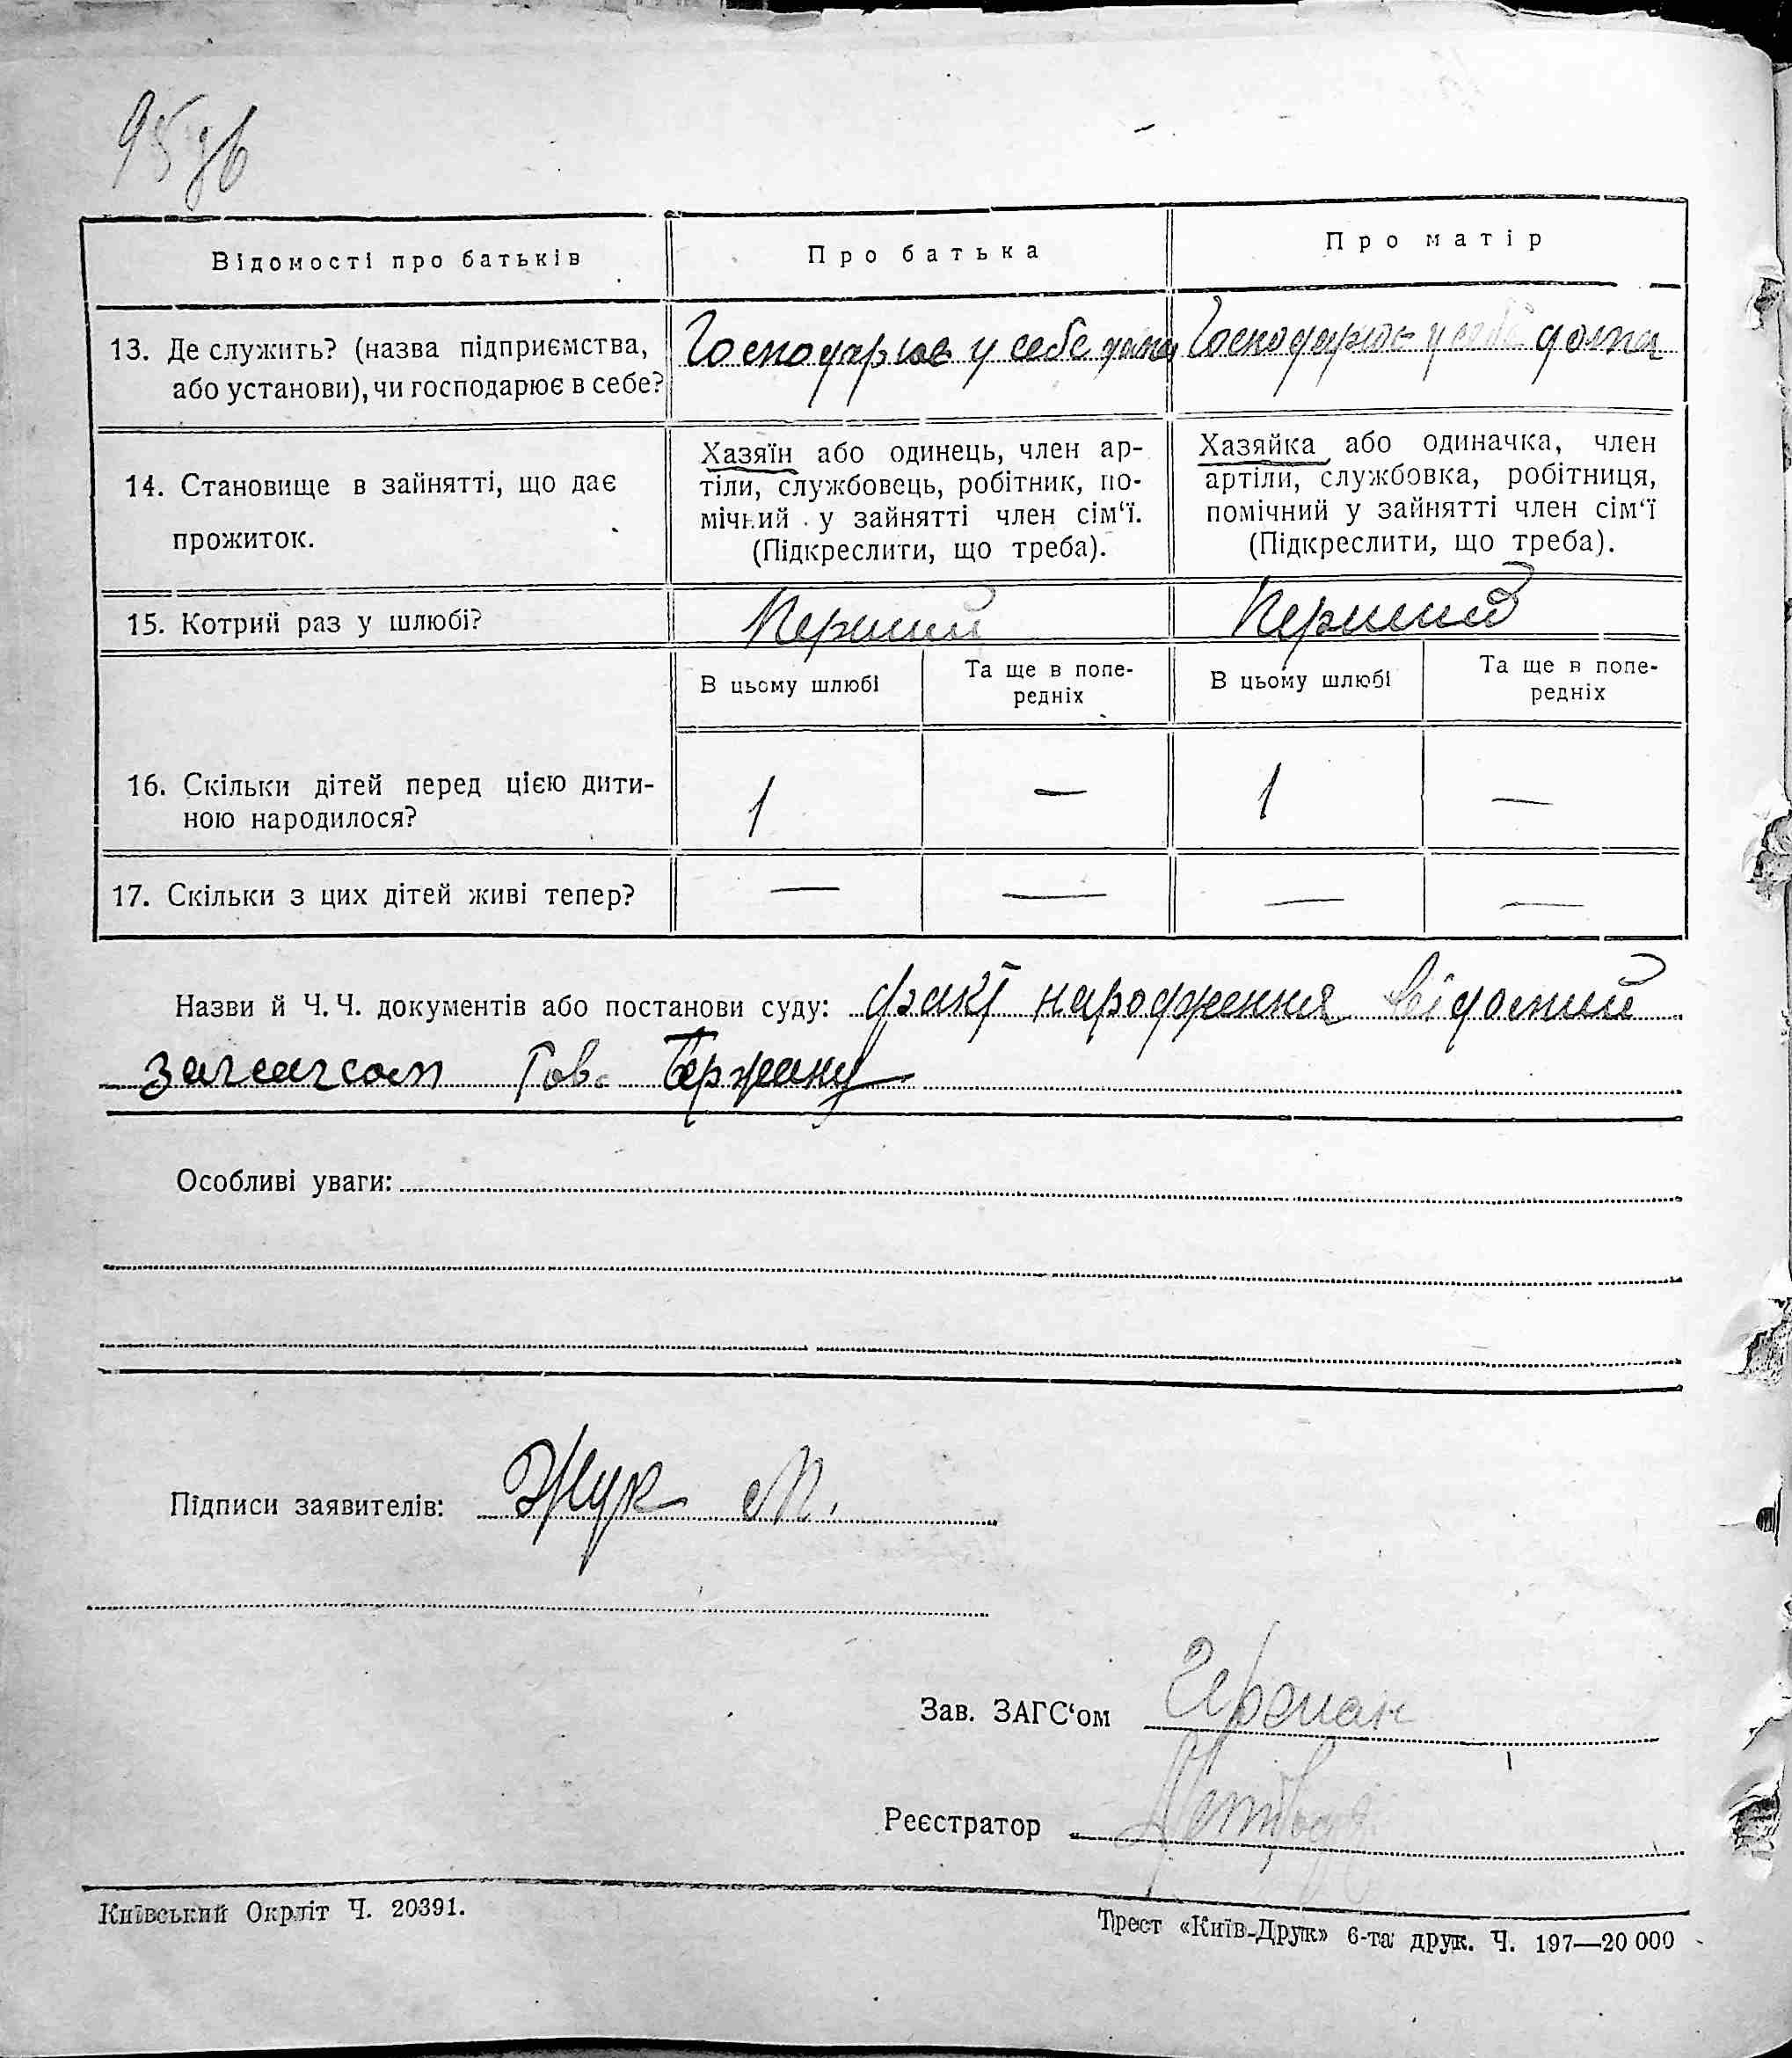 95 зв
Відомості про батьків
Про батька
Про матір
13. Де служить? (назва підприємства,
або установи), чи господарює в себе?
Господарює у себе дома
Господарює у себе дома
14. Становище в зайнятті, що дає
прожиток.
Хазяїн або одинець, член ар-
тіли, службовець, робітник, по-
мічний у зайнятті член сім‘ї.
(Підкреслити, що треба).
Хазяйка або одиначка, член
артіли, службовка, робітниця,
помічний у зайнятті член сім‘ї
(Підкреслити, що треба).
15. Котрий раз у шлюбі?
Перший
Перший
В цьому шлюбі
Та ще в попе-
редніх
В цьому шлюбі
Та ще в попе-
редніх
16. Скільки дітей перед цією дити-
ною народилося?
1 — 1 —
17. Скільки з цих дітей живі тепер?
— — — —
Назви й Ч. Ч. документів або постанови суду: факт народження відомий
Тов.
Особливі уваги:
Підписи заявителів: Жук М.
Зав. ЗАГС‘ом Герман
Реєстратор
Київський Окрліт Ч. 20391.
Трест «Київ-Друк» 6-та друк. Ч. 197—20 000